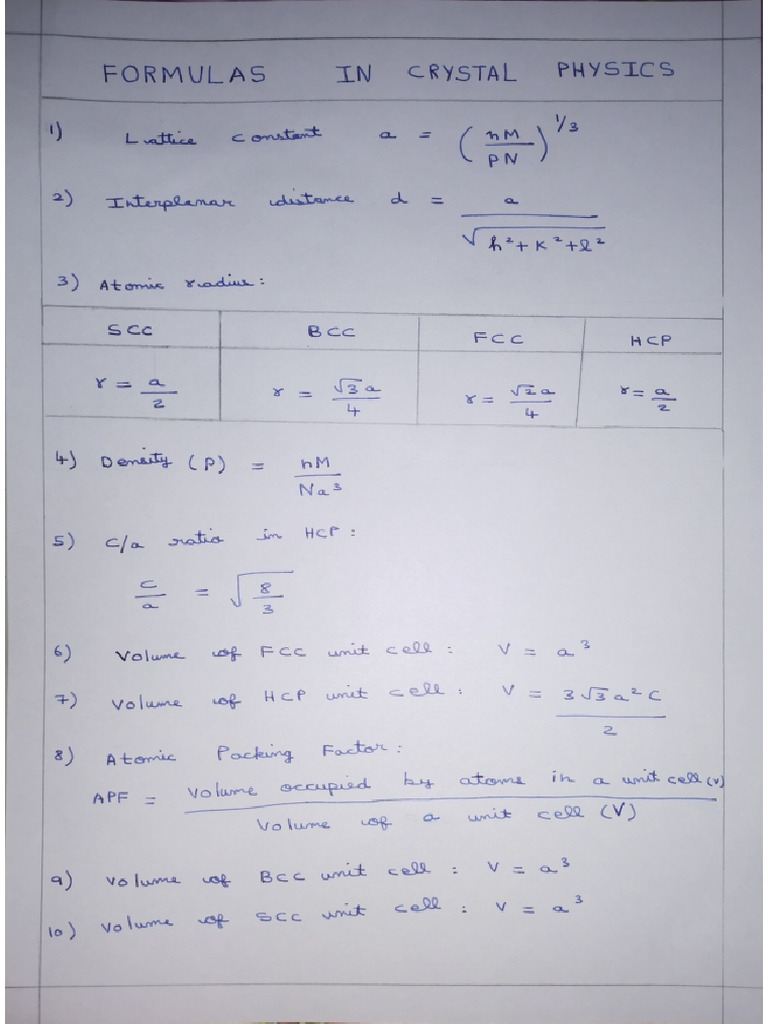 FORMULAS IN CRYSTAL PHYSICS
1) Lattice constant a = (nM/PN)^1/3
2) Interplanar distance d = a/√(h²+k²+l²)
3) Atomic radius:
SCC BCC FCC HCP
r = a/2 r = √3a/4 r = √2a/4 r = a/2
4) Density (P) = nM/Na³
5) c/a ratio in HCP:
c/a = √(8/3)
6) Volume of FCC unit cell : V = a³
7) Volume of HCP unit cell : V = 3√3a²c/2
8) Atomic Packing Factor:
APF = Volume occupied by atoms in a unit cell (v)
Volume of a unit cell (V)
9) Volume of BCC unit cell : V = a³
10) Volume of SCC unit cell : V = a³